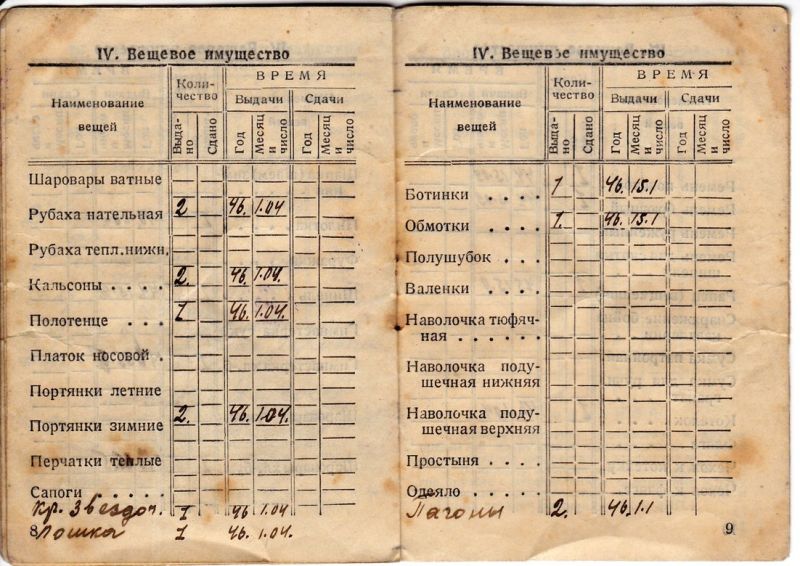 IV. Вещевое имущество
Наименование вещей
Коли-
чество
ВРЕМЯ
Выдачи
Сдачи
Выда-
но
Сдано
Год
Месяц и число
Год
Месяц и число
Шаровары ватные
Рубаха нательная 2 46. 1.04
Рубаха тепл.нижн.
Кальсоны . . . . 2. 46. 1.04.
Полотенце . . . 1 46. 1.04.
Платок носовой .
Портянки летние
Портянки зимние 2. 46. 1.04.
Перчатки теплые
Сапоги . . . . .
Кр. Звездоч. 1 46 1.04
Лошка 1 46. 1.04.
8
IV. Вещевое имущество
Наименование
вещей
Коли-
чество
ВРЕМЯ
Выдачи
Сдачи
Выда-
но
Сдано
Год
Месяц и число
Год
Месяц и число
Ботинки . . . . 1 46. 15.1
Обмотки . . . . 1. 46. 15.1
Полушубок . .
Валенки . . . .
Наволочка тюфяч-
ная . . . . . .
Наволочка поду-
шечная нижняя
Наволочка поду-
шечная верхняя
Простыня . . . .
Одеяло . . . .
Пагоны 2. 46. 1.1
9